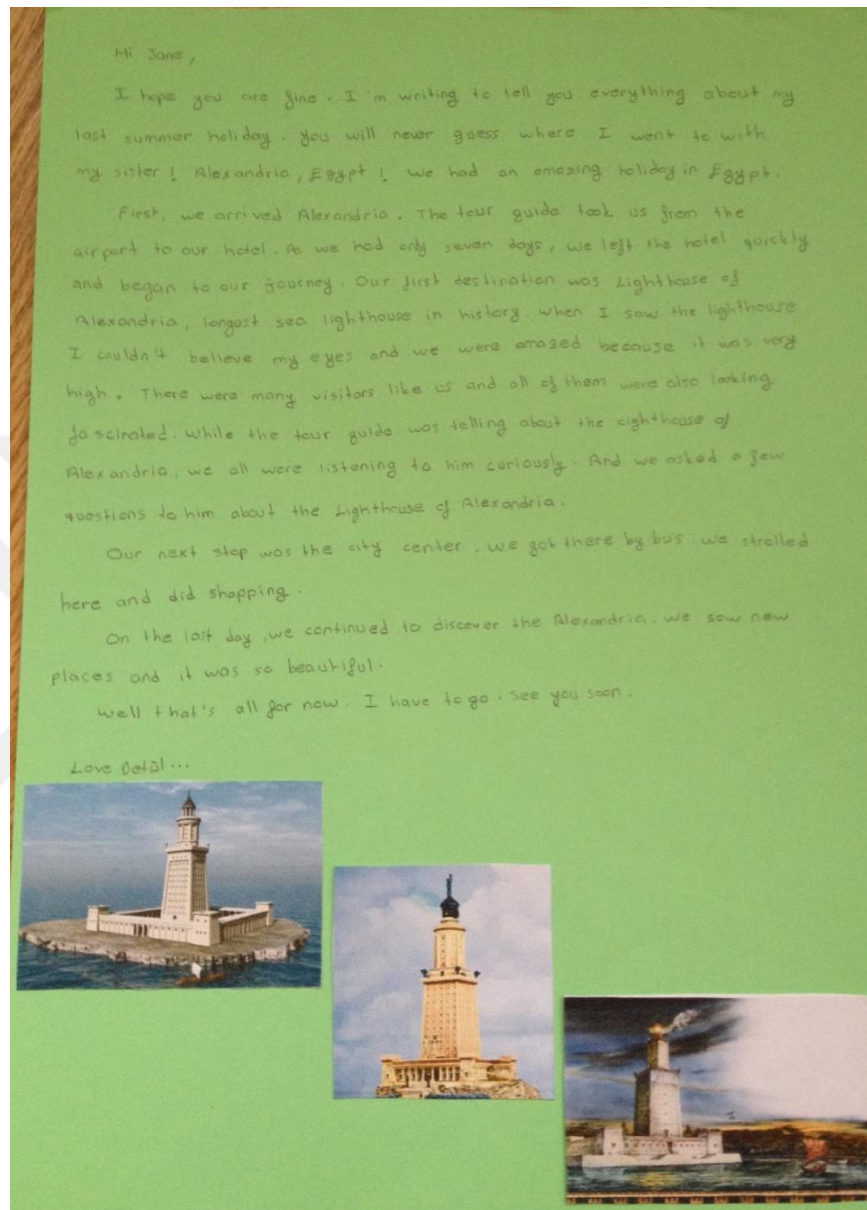 Hi Jane,
I hope you are fine. I'm writing to tell you everything about my
last summer holiday. you will never guess where I went to with
my sister! Alexandria, Egypt! we had an amazing holiday in Egypt.
First, we arrived Alexandria. The tour guide took us from the
airport to our hotel. As we had only seven days, we left the hotel quickly
and began to our journey. Our first destination was Lighthouse of
Alexandria, longest sea lighthouse in history. when I saw the lighthouse
I couldn't believe my eyes and we were amazed because it was very
high. There were many visitors like us and all of them were also looking
fascinated. while the tour guide was telling about the Lighthouse of
Alexandria, we all were listening to him curiously. And we asked a few
questions to him about the Lighthouse of Alexandria.
Our next stop was the city center. we got there by bus. we strolled
here and did shopping.
On the last day, we continued to discover the Alexandria. we saw new
places and it was so beautiful.
well that's all for now. I have to go. see you soon.
Love Betül...